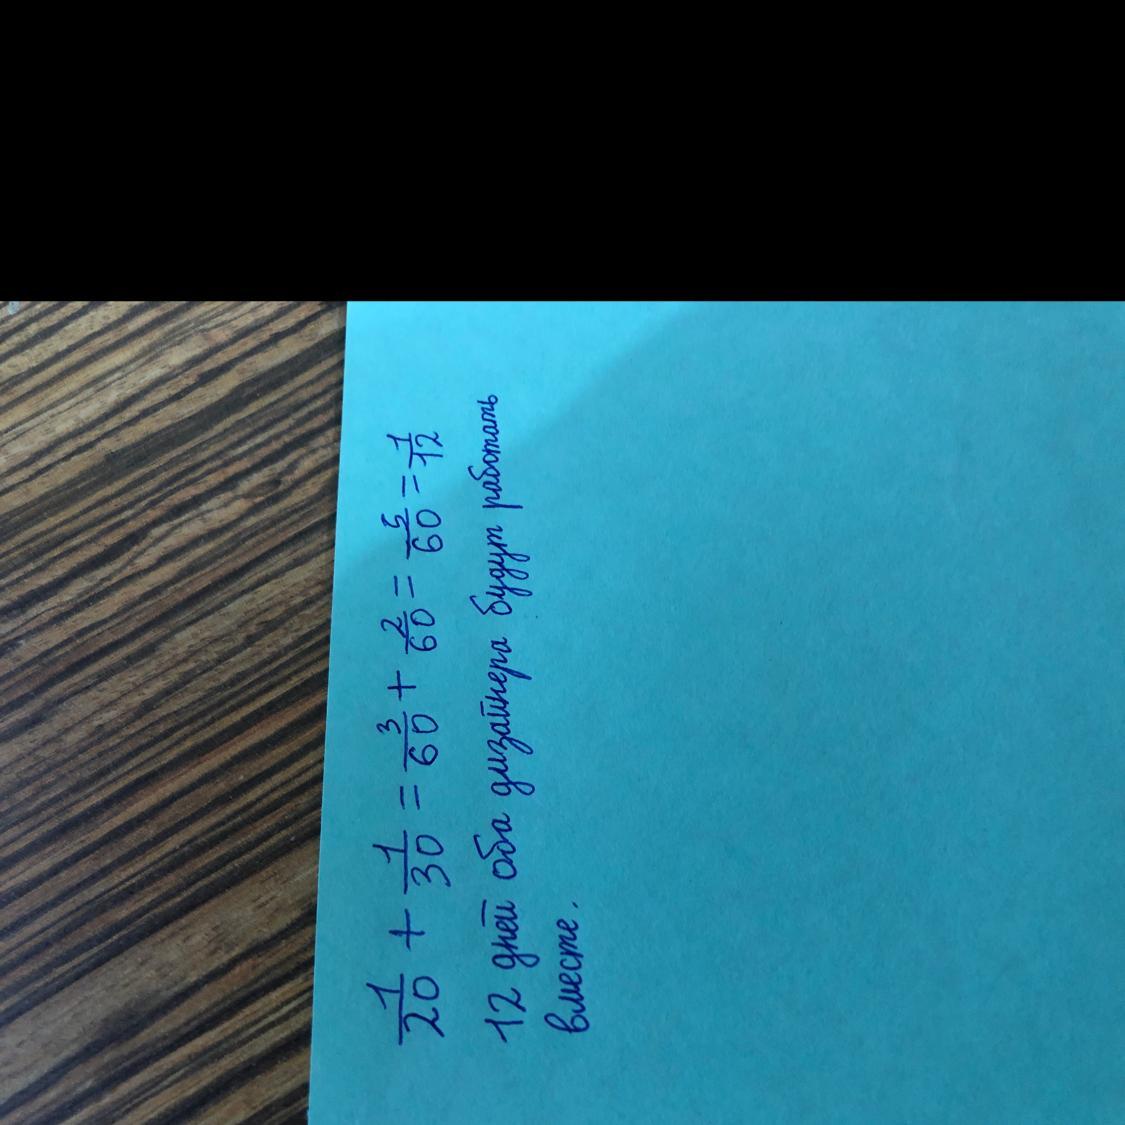 1/20 + 1/30 = 3/60 + 2/60 = 5/60 = 1/12
12 дней оба дизайнера будут работать
вместе.